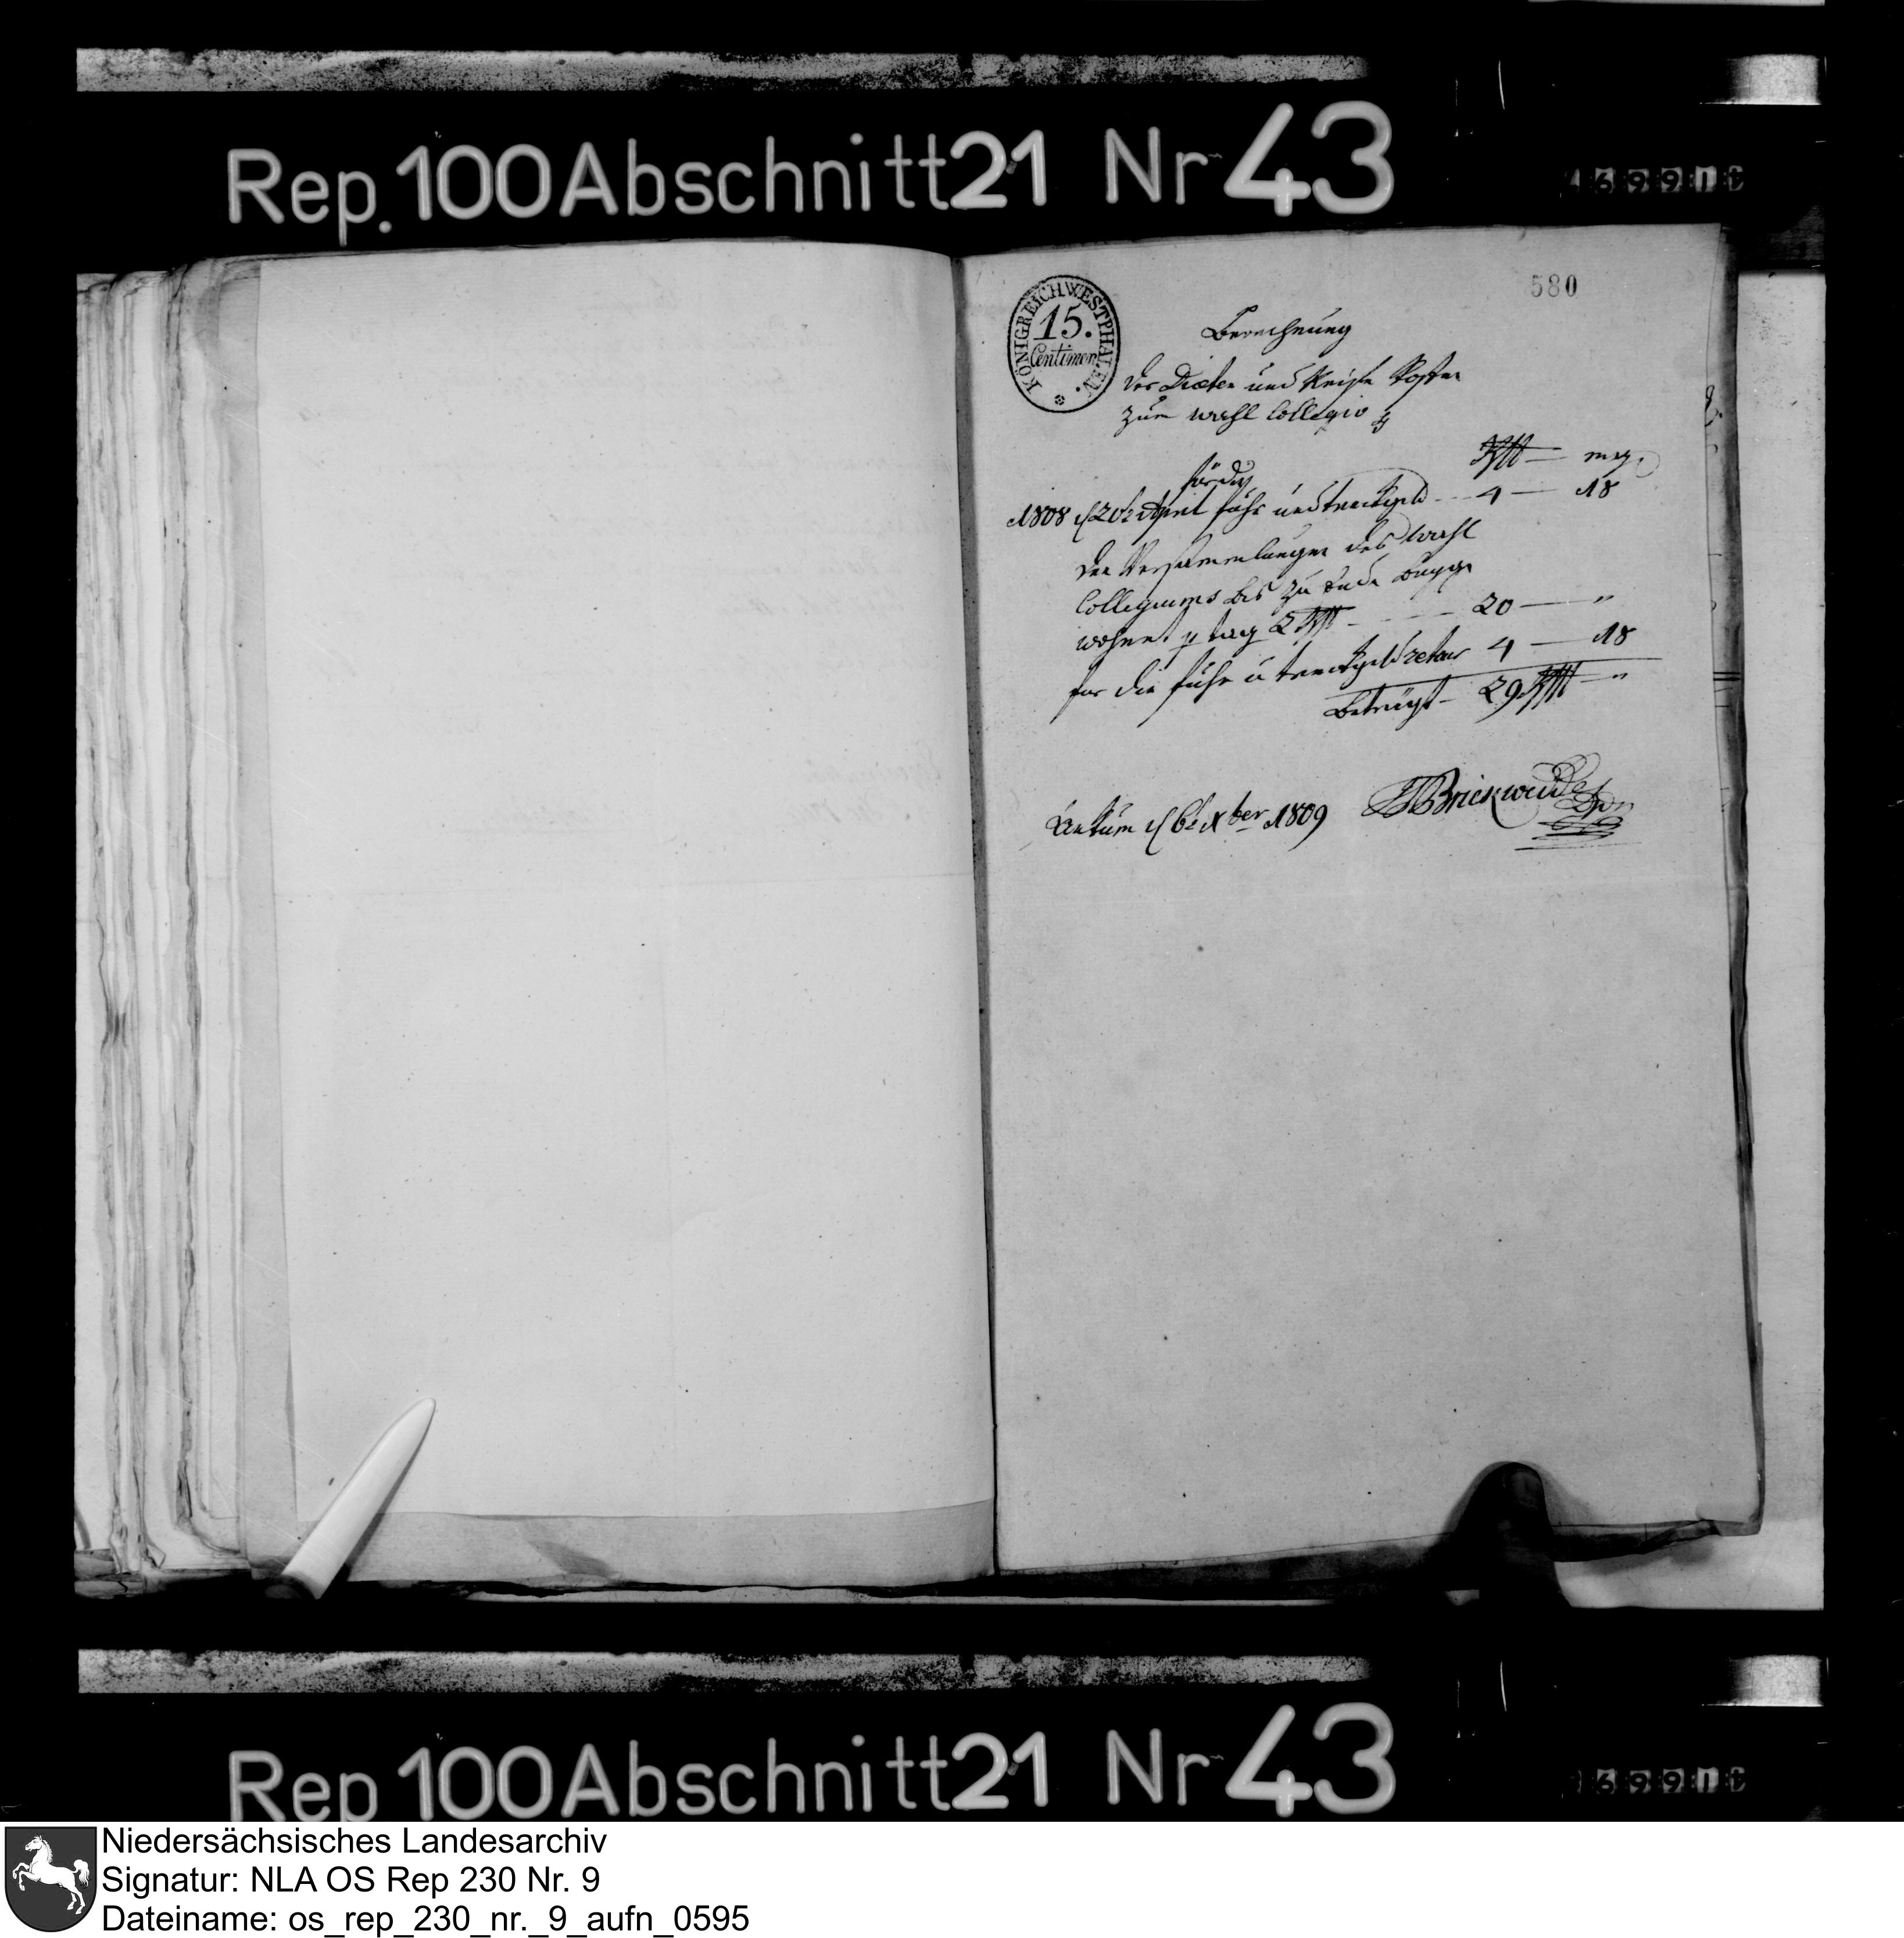 Rep. 100 Abschnitt 21 Nr 43
580
KÖNIGREICH WESTPHALEN
15.
Centimen
Berechnung
der Diæten und Reise Kosten
zum wahl Collegio
Rthl — mg.
für die
1808 d 20t April fuhr und trinkgeld — 4 — 18
den Versammlungen des Wahl
Collegiums bis zu Ende beyge
wohnt p tag 2 Rthl — 20 — "
für die fuhr u trinkgeld retour 4 — 18
Beträgt — 29 Rthl — "
Ankum d 6t Xber 1809
Brickwedde
Rep 100 Abschnitt 21 Nr 43
Niedersächsisches Landesarchiv
Signatur: NLA OS Rep 230 Nr. 9
Dateiname: os_rep_230_nr._9_aufn_0595